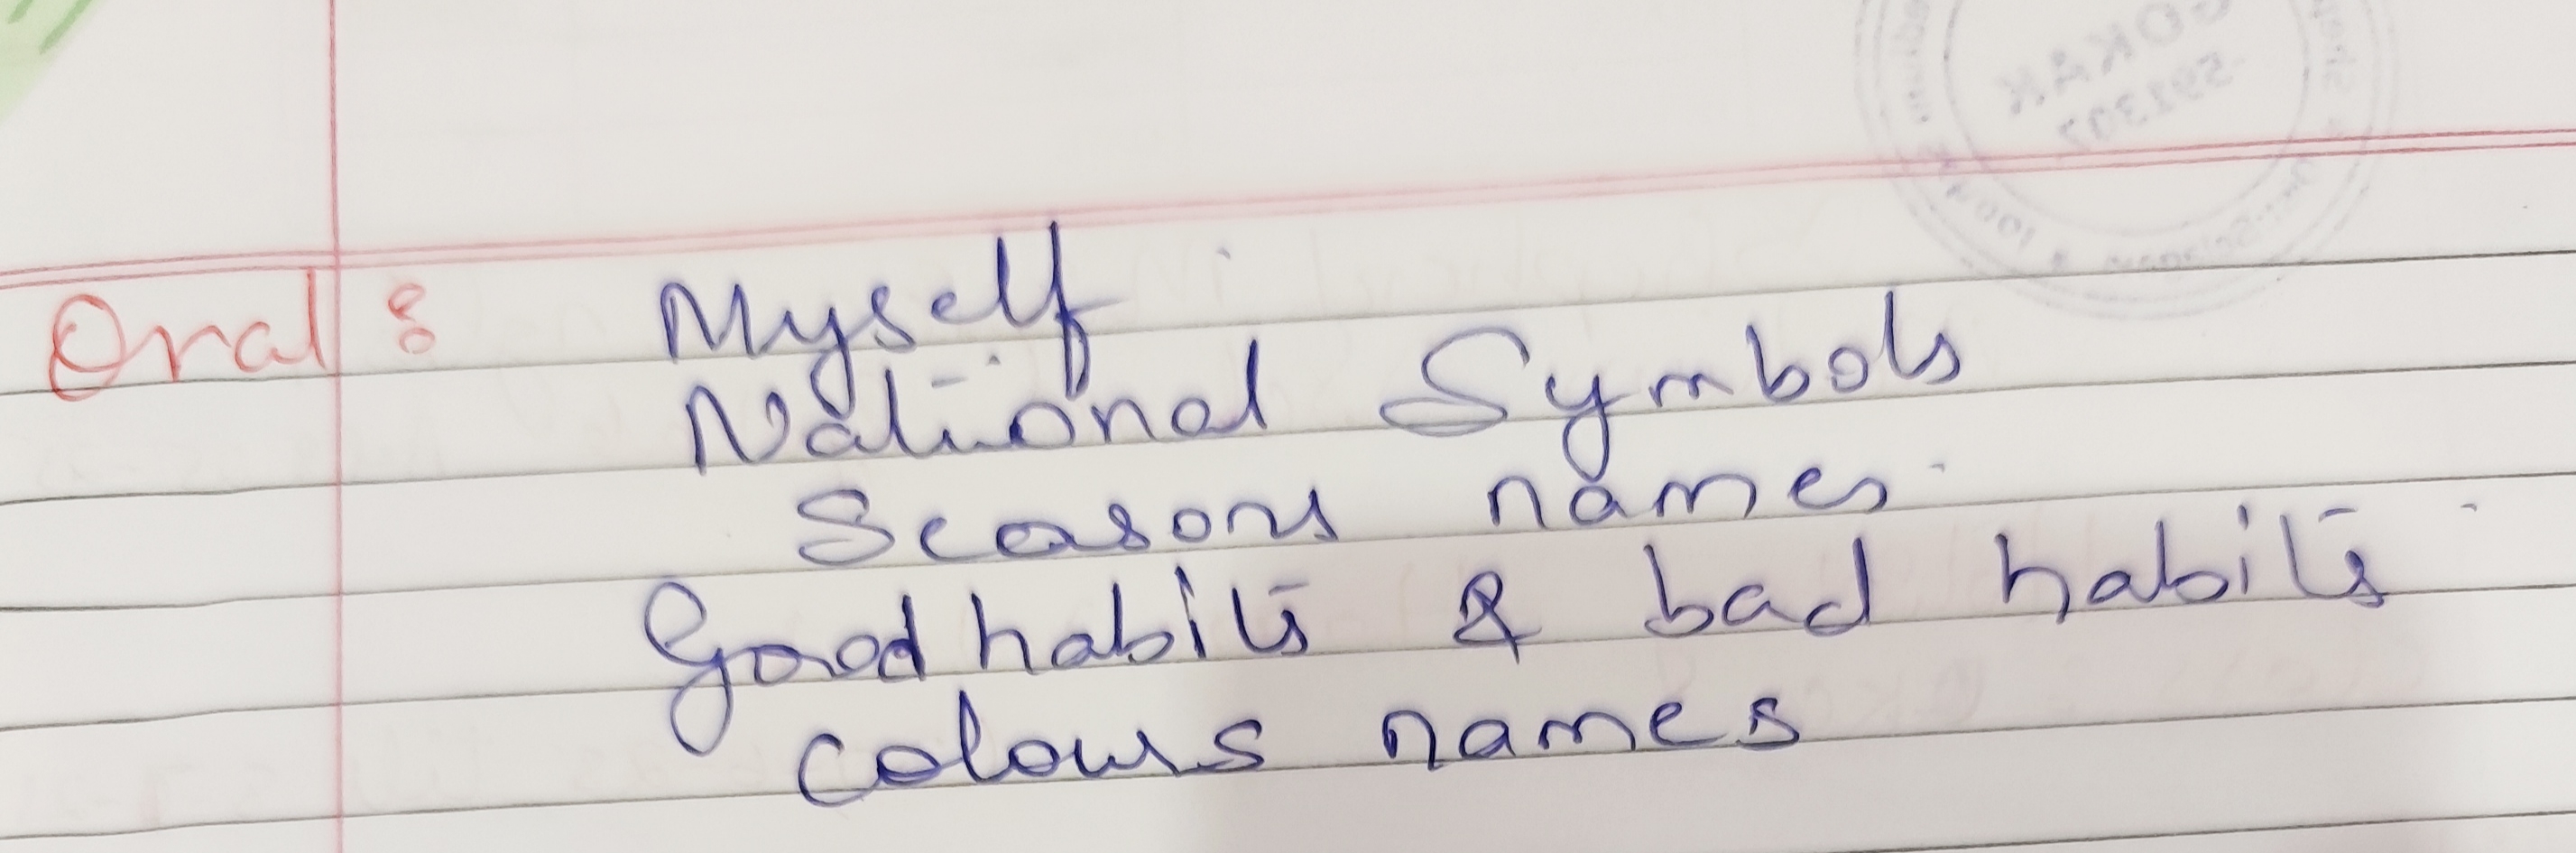 GOKAK
591307
Oral : Myself
National Symbols
Seasons names.
Good habits & bad habits.
colours names